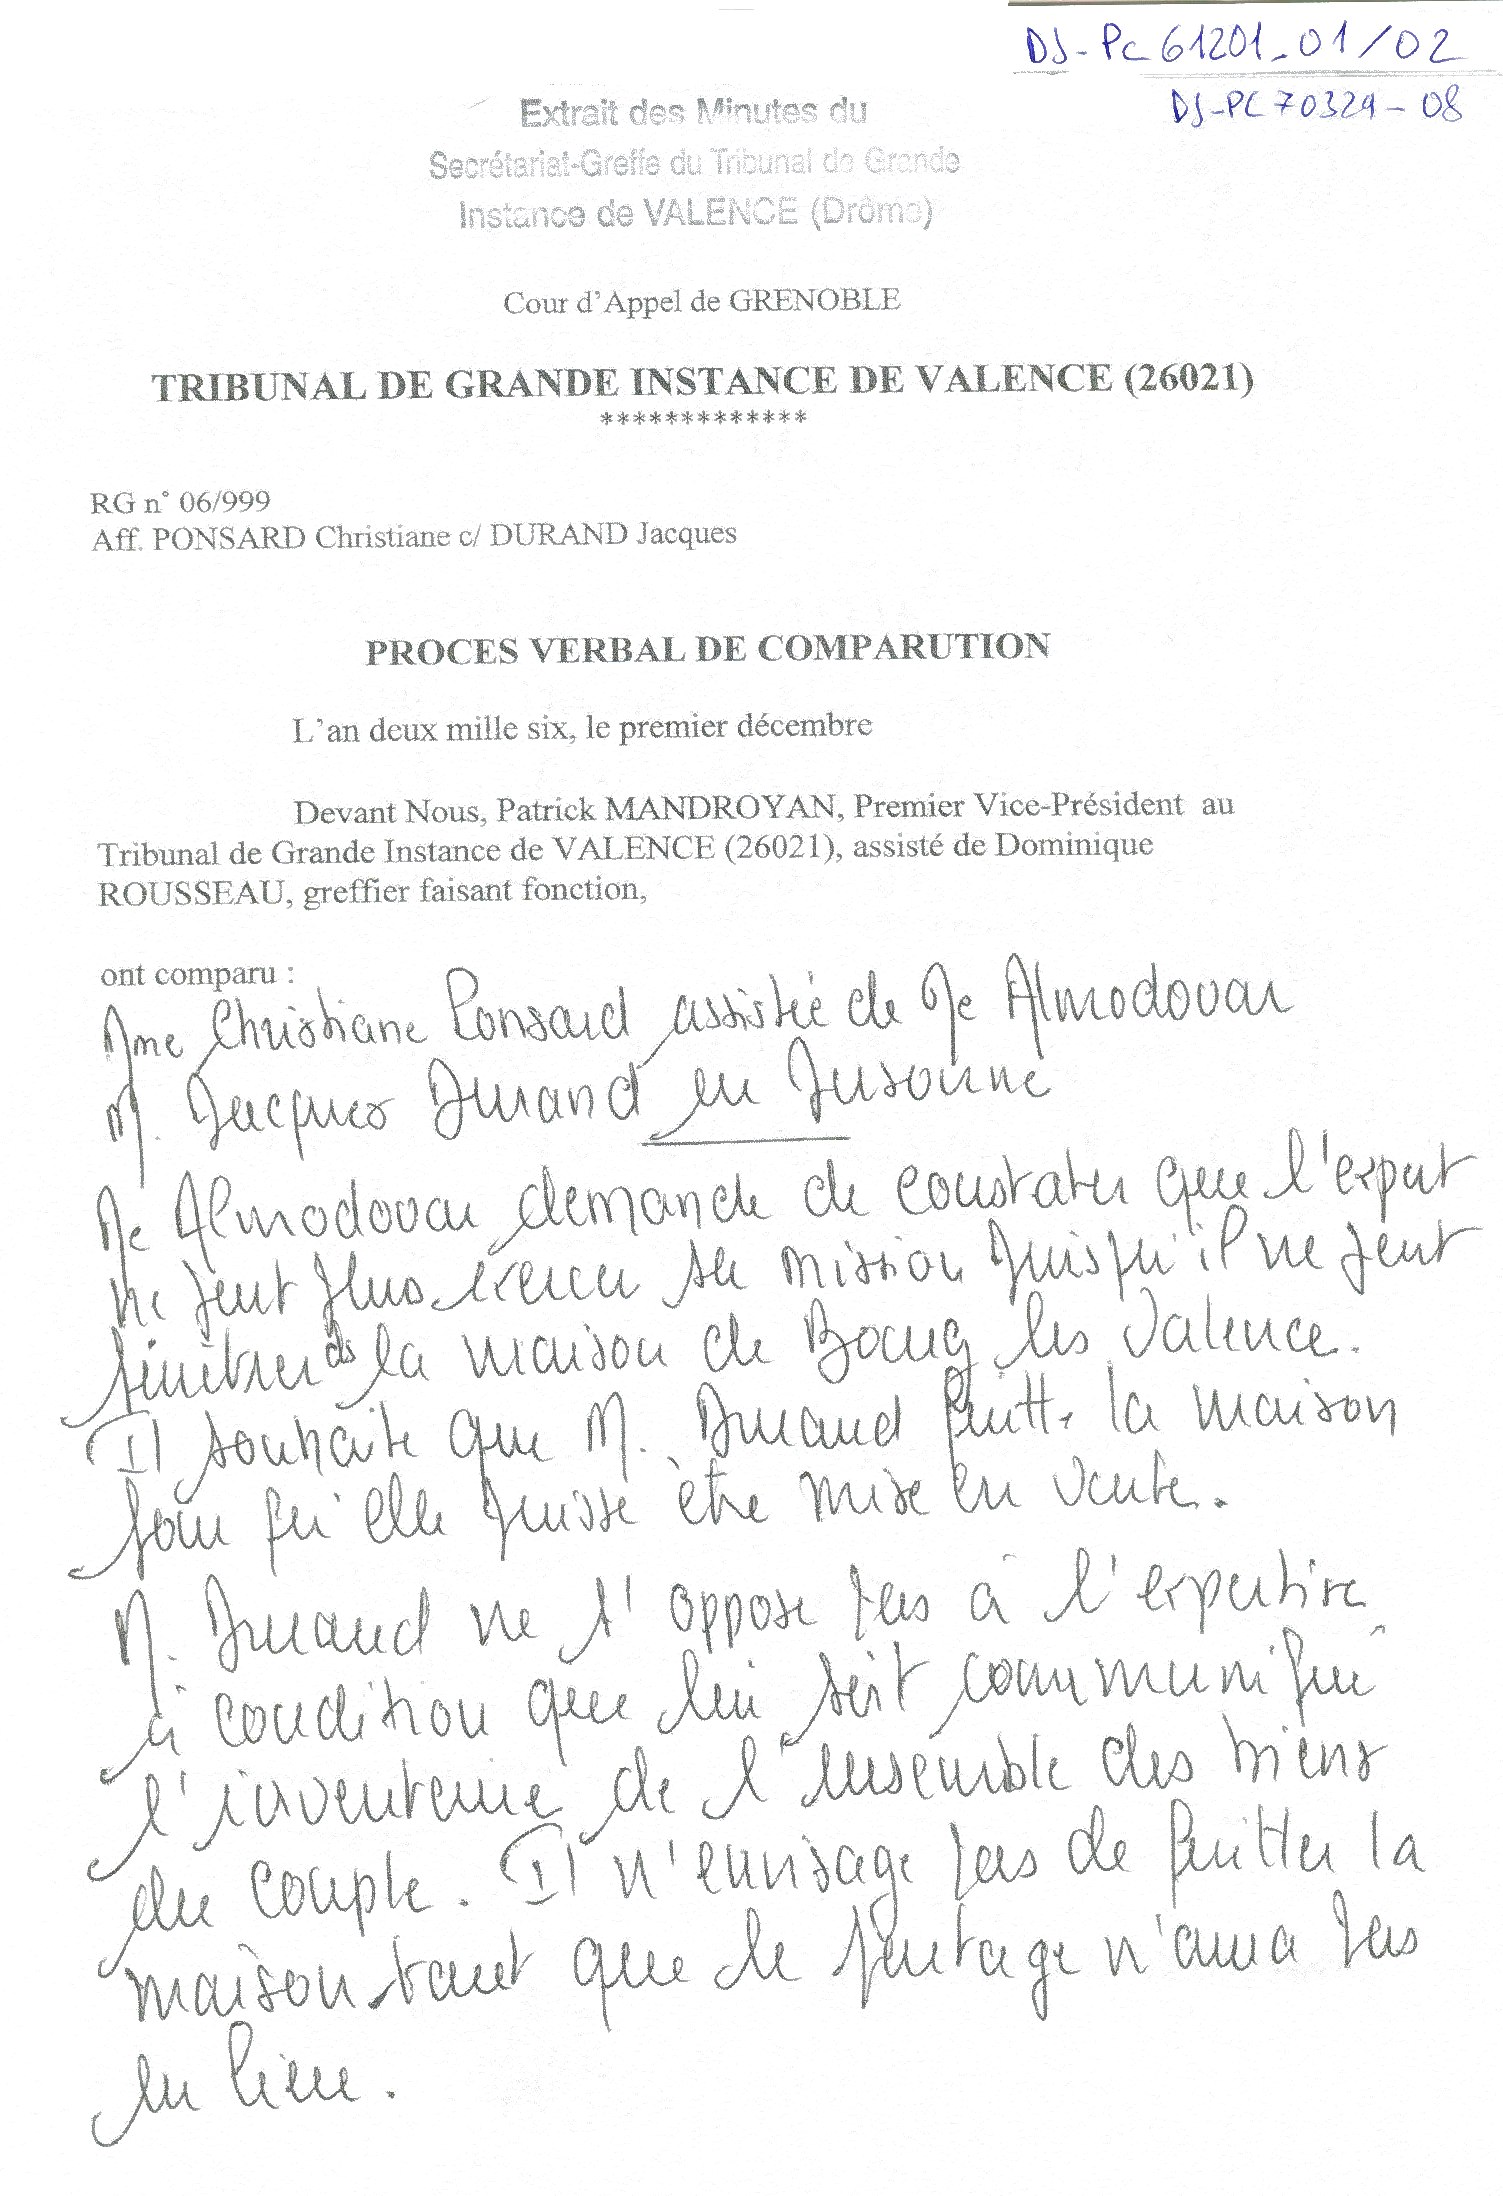 DJ-PC 61201-01/02
DJ-PC 70329-08
Extrait des Minutes du
Secrétariat-Greffe du Tribunal de Grande
Instance de VALENCE (Drôme)
Cour d'Appel de GRENOBLE
TRIBUNAL DE GRANDE INSTANCE DE VALENCE (26021)
*************
RG n° 06/999
Aff. PONSARD Christiane c/ DURAND Jacques
PROCES VERBAL DE COMPARUTION
L'an deux mille six, le premier décembre
Devant Nous, Patrick MANDROYAN, Premier Vice-Président au
Tribunal de Grande Instance de VALENCE (26021), assisté de Dominique
ROUSSEAU, greffier faisant fonction,
ont comparu :
Mme Christiane Ponsard assistée de Me Almodovar
M. Jacques Durand en personne
Me Almodovar demande de constater que l'expert
ne peut plus exercer sa mission puisqu'il ne peut
pénétrer ds la maison de Bourg les Valence.
Il souhaite que M. Durand quitte la maison
pour qu'elle puisse être mise en vente.
M. Durand ne s'oppose pas à l'expertise
à condition que lui soit communiqué
l'inventaire de l'ensemble des biens
du couple. Il n'envisage pas de quitter la
maison tant que le partage n'aura pas
eu lieu.